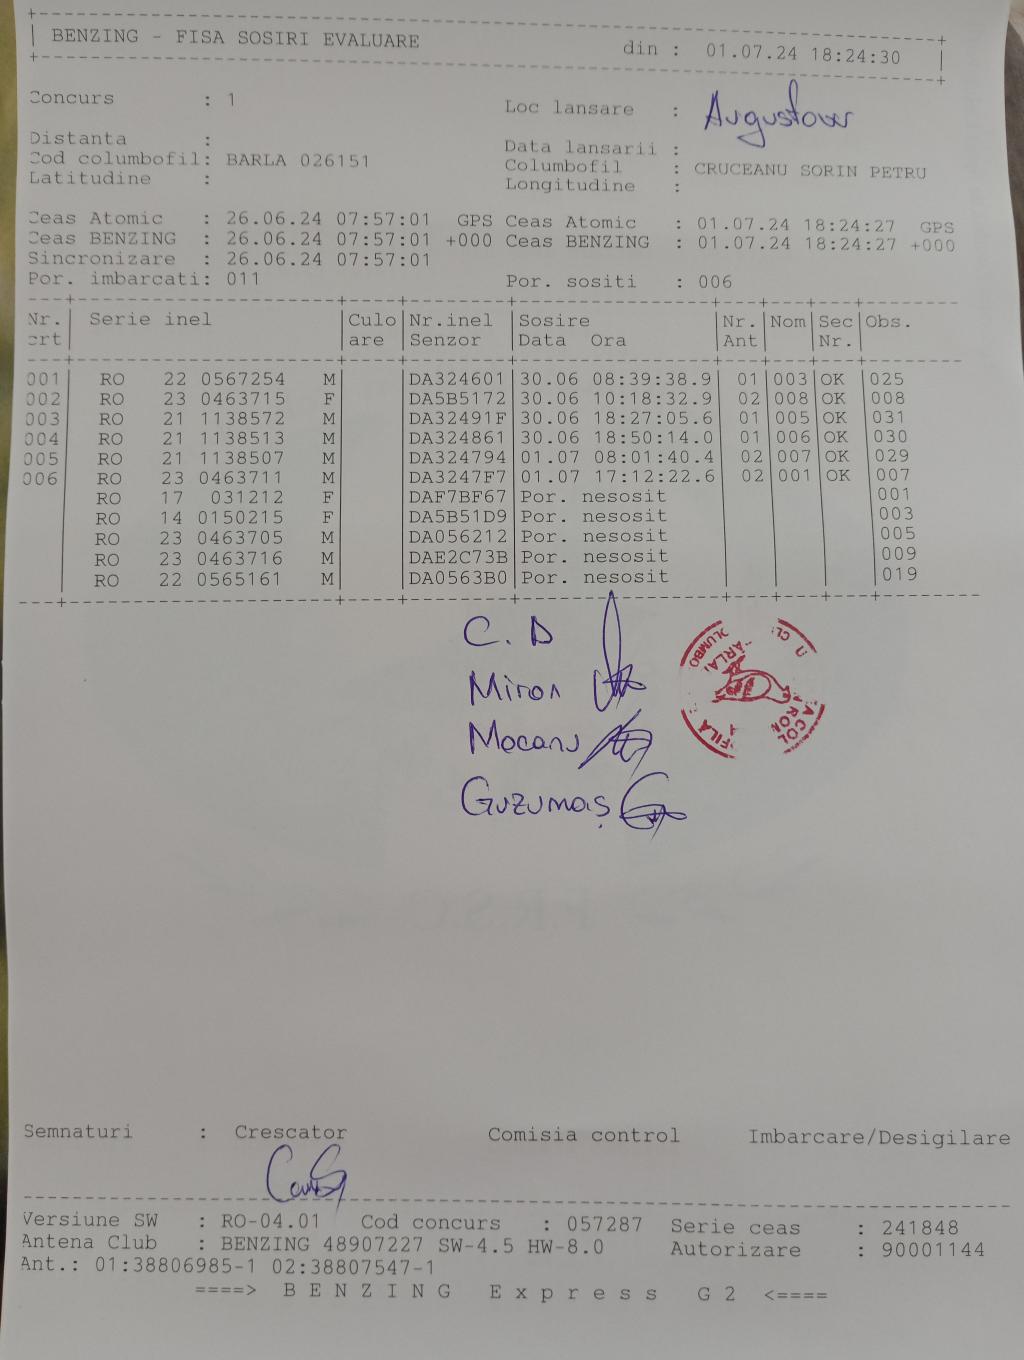 BENZING - FISA SOSIRI EVALUARE din : 01.07.24 18:24:30
Concurs : 1 Loc lansare : Augustow
Distanta : Data lansarii :
Cod columbofil: BARLA 026151 Columbofil : CRUCEANU SORIN PETRU
Latitudine : Longitudine :
Ceas Atomic : 26.06.24 07:57:01 GPS Ceas Atomic : 01.07.24 18:24:27 GPS
Ceas BENZING : 26.06.24 07:57:01 +000 Ceas BENZING : 01.07.24 18:24:27 +000
Sincronizare : 26.06.24 07:57:01
Por. imbarcati: 011 Por. sositi : 006
Nr. Serie inel Culo Nr.inel Sosire Nr. Nom Sec Obs.
crt are Senzor Data Ora Ant Nr.
001 RO 22 0567254 M DA324601 30.06 08:39:38.9 01 003 OK 025
002 RO 23 0463715 F DA5B5172 30.06 10:18:32.9 02 008 OK 008
003 RO 21 1138572 M DA32491F 30.06 18:27:05.6 01 005 OK 031
004 RO 21 1138513 M DA324861 30.06 18:50:14.0 01 006 OK 030
005 RO 21 1138507 M DA324794 01.07 08:01:40.4 02 007 OK 029
006 RO 23 0463711 M DA3247F7 01.07 17:12:22.6 02 001 OK 007
RO 17 031212 F DAF7BF67 Por. nesosit 001
RO 14 0150215 F DA5B51D9 Por. nesosit 003
RO 23 0463705 M DA056212 Por. nesosit 005
RO 23 0463716 M DAE2C73B Por. nesosit 009
RO 22 0565161 M DA0563B0 Por. nesosit 019
C. D
Miron
Mocanu
Guzumaș
Semnaturi : Crescator Comisia control Imbarcare/Desigilare
Versiune SW : RO-04.01 Cod concurs : 057287 Serie ceas : 241848
Antena Club : BENZING 48907227 SW-4.5 HW-8.0 Autorizare : 90001144
Ant.: 01:38806985-1 02:38807547-1
====> B E N Z I N G E x p r e s s G 2 <====